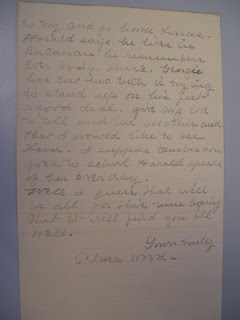 to try and go home Lucas.
Harald says he lives in
Buchanan he remembers
ever body there. Georgie
has cut two teeth is trying
to stand up on his feet
a good deal. give my love
to all and her mother and
that I would like to see
them. I suppose
goes to school Harald speaks
of her Ever day.
Well I guess that will
be all for this time hoping
that it will find you all
well.
Yours truly
Clara Wood-